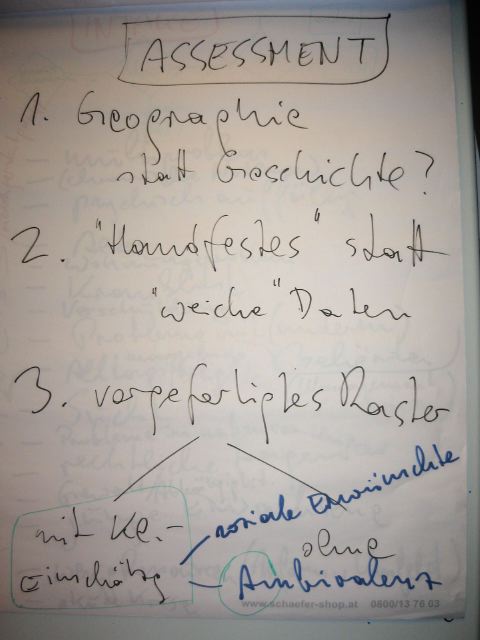 ASSESSMENT
1. Geographie
statt Geschichte?
2. "Handfestes" statt
"weiche" Daten
3. vorgefertigtes Raster
mit Kl.-
Einschätzg
ohne
soziale Erwünschte
Ambivalenz
www.schaefer-shop.at 0800/13 76 03